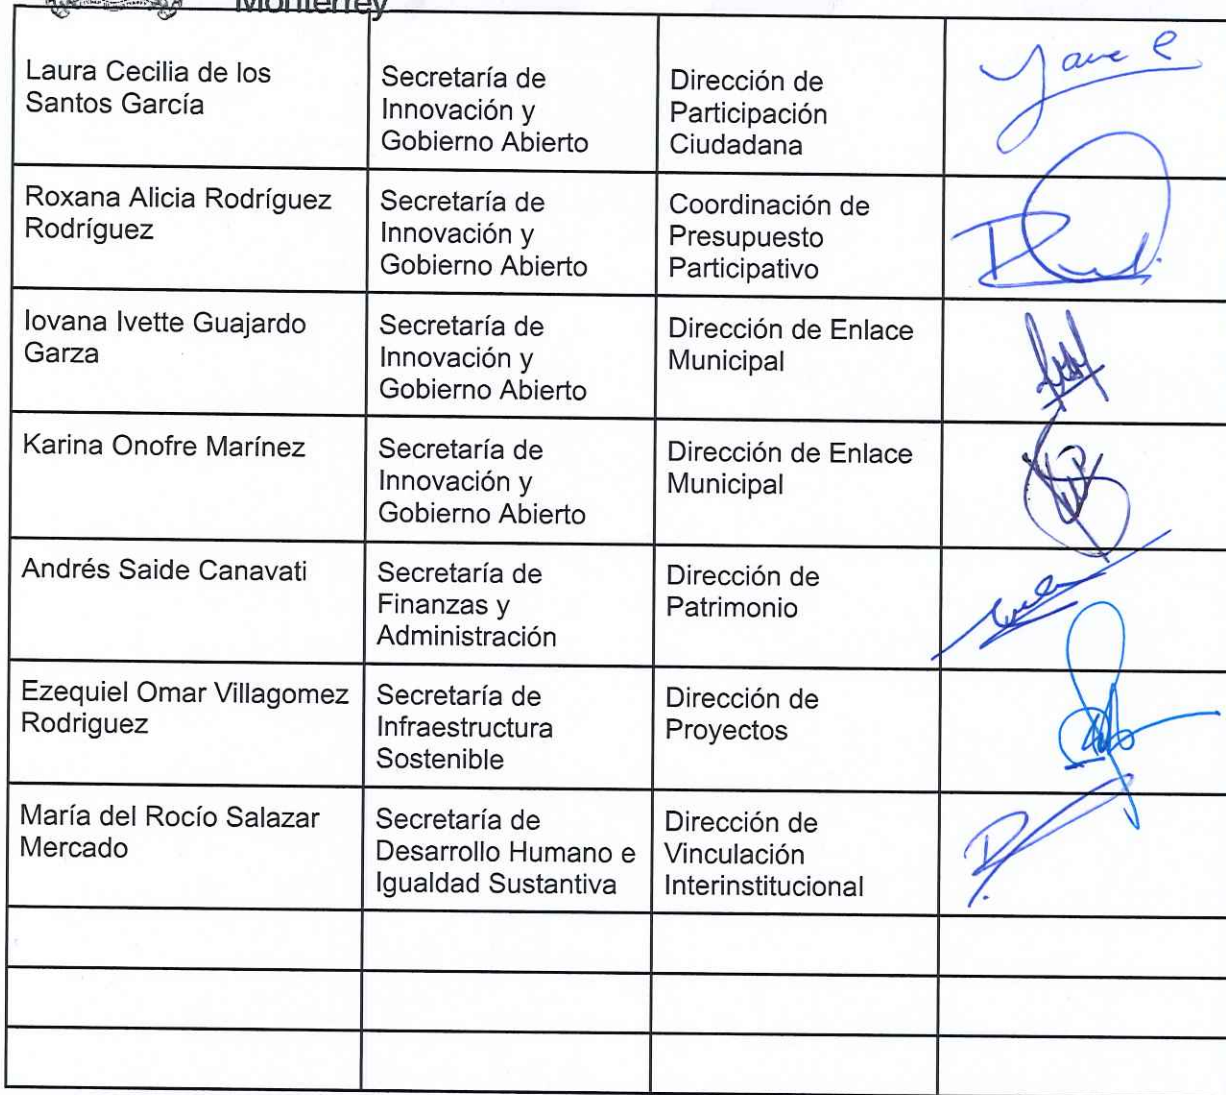 Monterrey
Laura Cecilia de los
Santos García
Secretaría de
Innovación y
Gobierno Abierto
Dirección de
Participación
Ciudadana
Roxana Alicia Rodríguez
Rodríguez
Secretaría de
Innovación y
Gobierno Abierto
Coordinación de
Presupuesto
Participativo
Iovana Ivette Guajardo
Garza
Secretaría de
Innovación y
Gobierno Abierto
Dirección de Enlace
Municipal
Karina Onofre Marínez
Secretaría de
Innovación y
Gobierno Abierto
Dirección de Enlace
Municipal
Andrés Saide Canavati
Secretaría de
Finanzas y
Administración
Dirección de
Patrimonio
Ezequiel Omar Villagomez
Rodriguez
Secretaría de
Infraestructura
Sostenible
Dirección de
Proyectos
María del Rocío Salazar
Mercado
Secretaría de
Desarrollo Humano e
Igualdad Sustantiva
Dirección de
Vinculación
Interinstitucional